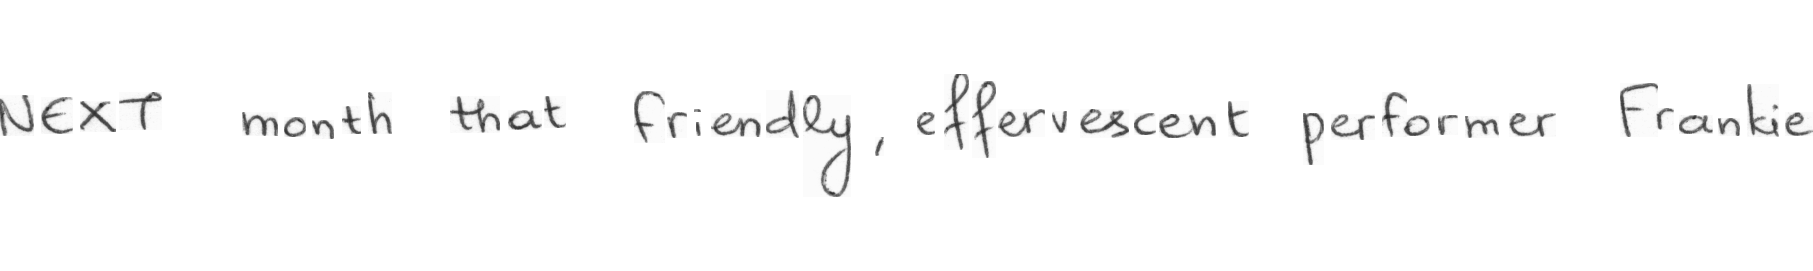 NEXT month that friendly, effervescent performer Frankie